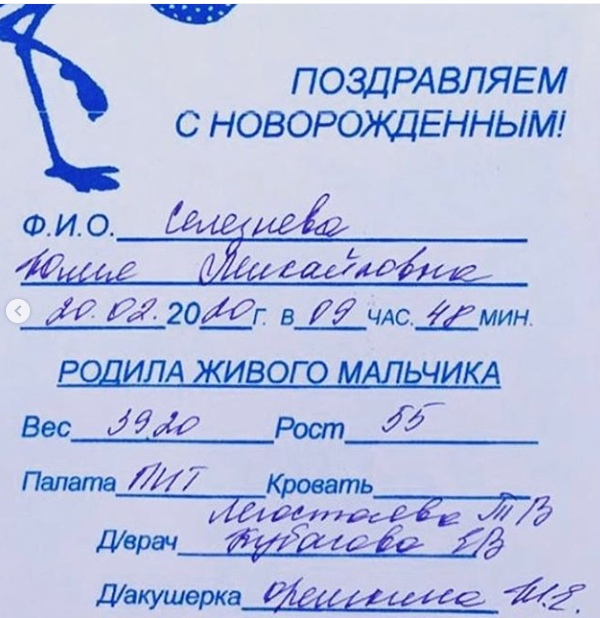 ПОЗДРАВЛЯЕМ
С НОВОРОЖДЕННЫМ!
Ф.И.О. Селезнева
Юлия Михайловна
20.02.2020г. в 09 ЧАС. 48 МИН.
РОДИЛА ЖИВОГО МАЛЬЧИКА
Вес 3920 Рост 55
Палата ПИТ Кровать
Легостаева ТВ
Д/врач Кубасова ЕВ
Д/акушерка Орешкина